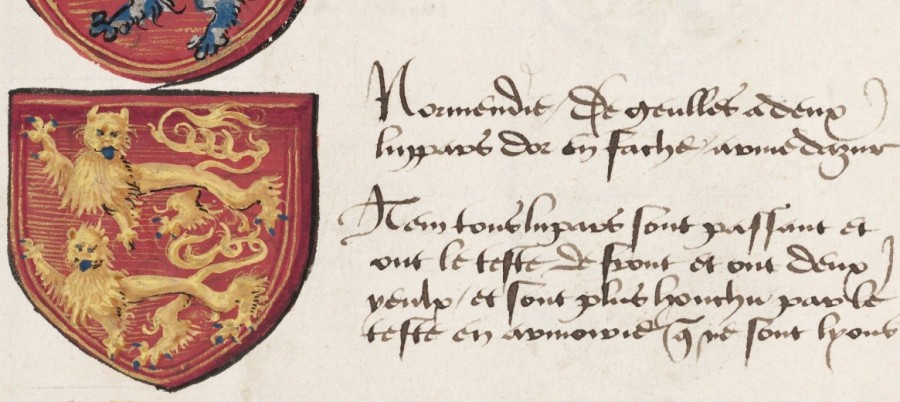 Normendie / De geulles a deux
luppars dor en fache / arme dazur
Item tous lupars sont passant et
ont le teste de front et ont deux
yeulx / et sont plus houchu par le
teste en armoirie q̄ ne sont lyons